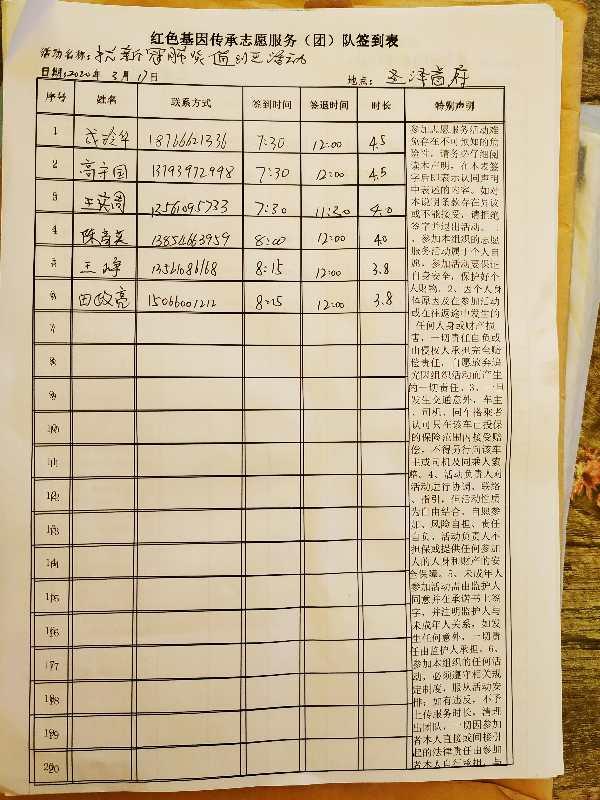 红色基因传承志愿服务（团）队签到表
活动名称：抗新冠肺炎值守区活动
日期：2020年 3月17日 地点：圣泽首府
序号 姓名 联系方式 签到时间 签退时间 时长 特别声明
1 18766621336 7:30 12:00 4.5
2 高宇国 13793972998 7:30 12:00 4.5
3 王英周 13561095733 7:30 11:30 4.0
4 陈高英 13854663959 8:00 12:00 4.0
5 王峰 8:15 12:00 3.8
6 田政亮 15066001212 8:15 12:00 3.8
7
8
9
10
11
12
13
14
15
16
17
18
19
20
参加志愿服务活动难
免存在不可预知的危
险性，请务必仔细阅
读本声明，在本表签
字后即表示认同声明
中表述的内容。如对
本说明条款存在异议
或不能接受，请拒绝
签字并退出活动。一
、参加本组织的志愿
服务活动属于个人自
愿，参加活动要保证
自身安全，保护好个
人财物。2、因个人身
体原因及在参加活动
或在往返途中发生的
任何人身或财产损
害，一切责任自负或
由侵权人承担完全赔
偿责任，自愿放弃追
究因组织活动而产生
的一切责任。3、一旦
发生交通意外，车主
、司机、同车搭乘者
认可只在该车已投保
的保险范围内接受赔
偿，不得另行向该车
主或司机及同乘人索
赔。4、活动负责人对
活动进行协调、联络
、指引，但活动性质
为自由结合、自愿参
加、风险自担、责任
自负，活动负责人不
担保或提供任何参加
人的人身和财产的安
全保障。5、未成年人
参加活动需由监护人
同意并在承诺书上签
字，并注明监护人与
未成年人关系，如发
生任何意外，一切责
任由监护人承担。6、
参加本组织的任何活
动，必须遵守相关规
定制度，服从活动安
排；如有违反，不予
上传服务时长，清理
出团队，一切因参加
者本人直接或间接引
起的法律责任由参加
者本人自行承担，与